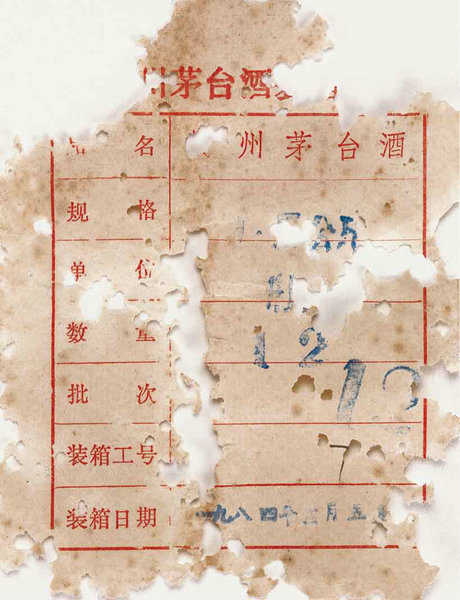 州茅台酒
名 州茅台酒
规格
单位
数量 12
批次 12
装箱工号 7
装箱日期 一九八四年三月五日